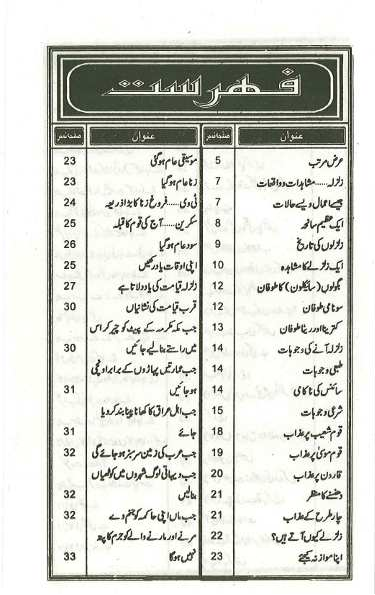 فہرست
عنوان صفحہ نمبر
عرض مرتب 5
زلزلہ.....مشاہدات و واقعات 7
جیسے اعمال ویسے حالات 7
ایک عظیم سانحہ 8
زلزلوں کی تاریخ 9
ایک زلزلے کا مشاہدہ 10
بگولوں (سائیکلون) کا طوفان 12
سونامی طوفان 12
کترینا اور ریٹا طوفان 13
زلزلہ آنے کی وجوہات 14
طبعی وجوہات 14
سائنس کی ناکامی 14
شرعی وجوہات 15
قوم شعیب پر عذاب 18
قوم موسیٰ پر عذاب 19
قارون پر عذاب 20
دھنسنے کا منظر 21
چار طرح کے عذاب 21
زلزلے کیوں آتے ہیں؟ 22
اپنا موازنہ کیجئے 23
عنوان صفحہ نمبر
موسیقی عام ہوگئی 23
زنا عام ہوگیا 23
ٹی وی.....فروغ زنا کا بڑا ذریعہ 24
سکرین.....آج کی قوم کا قبلہ 25
سود عام ہوگیا 26
اپنی اوقات یاد رکھیں 25
زلزلہ قیامت کی یاد دلاتا ہے 27
قرب قیامت کی نشانیاں 30
جب مکہ مکرمہ کے پیٹ کو چیر کر اس
میں راستے بنا لیے جائیں 30
جب عمارتیں پہاڑوں کے برابر اونچی
ہو جائیں 31
جب اہل عراق کا کھانا پینا بند کر دیا
جائے 31
جب عرب کی زمین سرسبز ہو جائے گی 32
جب دیہاتی لوگ شہروں میں کوٹھیاں
بنالیں 32
جب ماں اپنی حاکمہ کو جنم دے 32
مرنے اور مارنے والے کو جرم کا پتہ
نہیں ہوگا 33